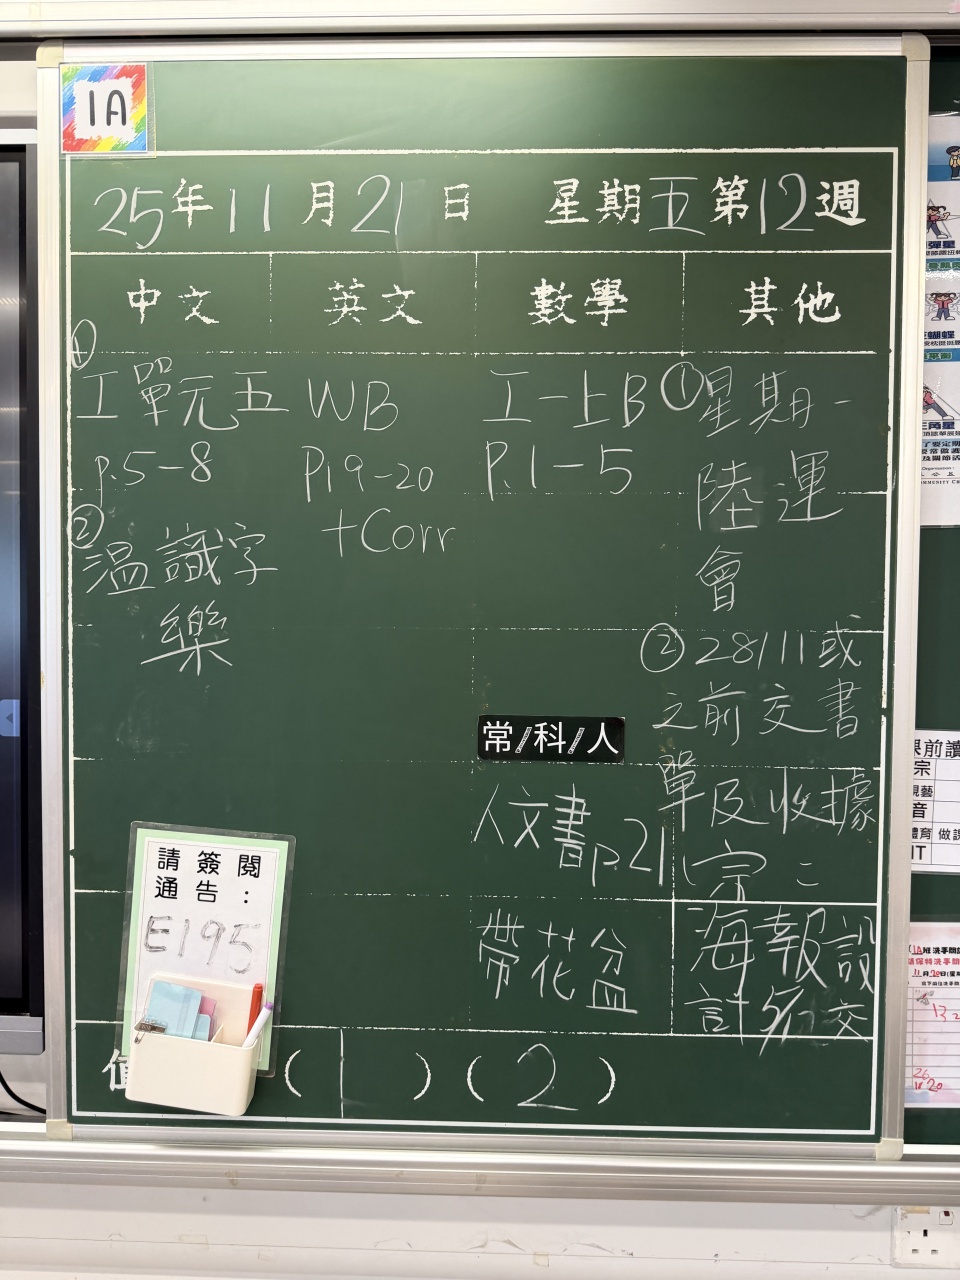 1A
25年11月21日 星期五第12週
中文 英文 數學 其他
①
工單元五
p.5-8
②
溫識字
樂
WB
P19-20
+Corr
工一上B
P.1-5
①星期一
陸運
會
②28/11或
之前交書
單及收據
(宗二
海報設
計
交
常/科/人
人文書p.21
帶花盆
請簽閱
通告:
E195
(1)(2)
彈星
蝴蝶
三角星
課前讀
宗
視藝
音
體育
IT
做課
1A班洗手間
11月20日